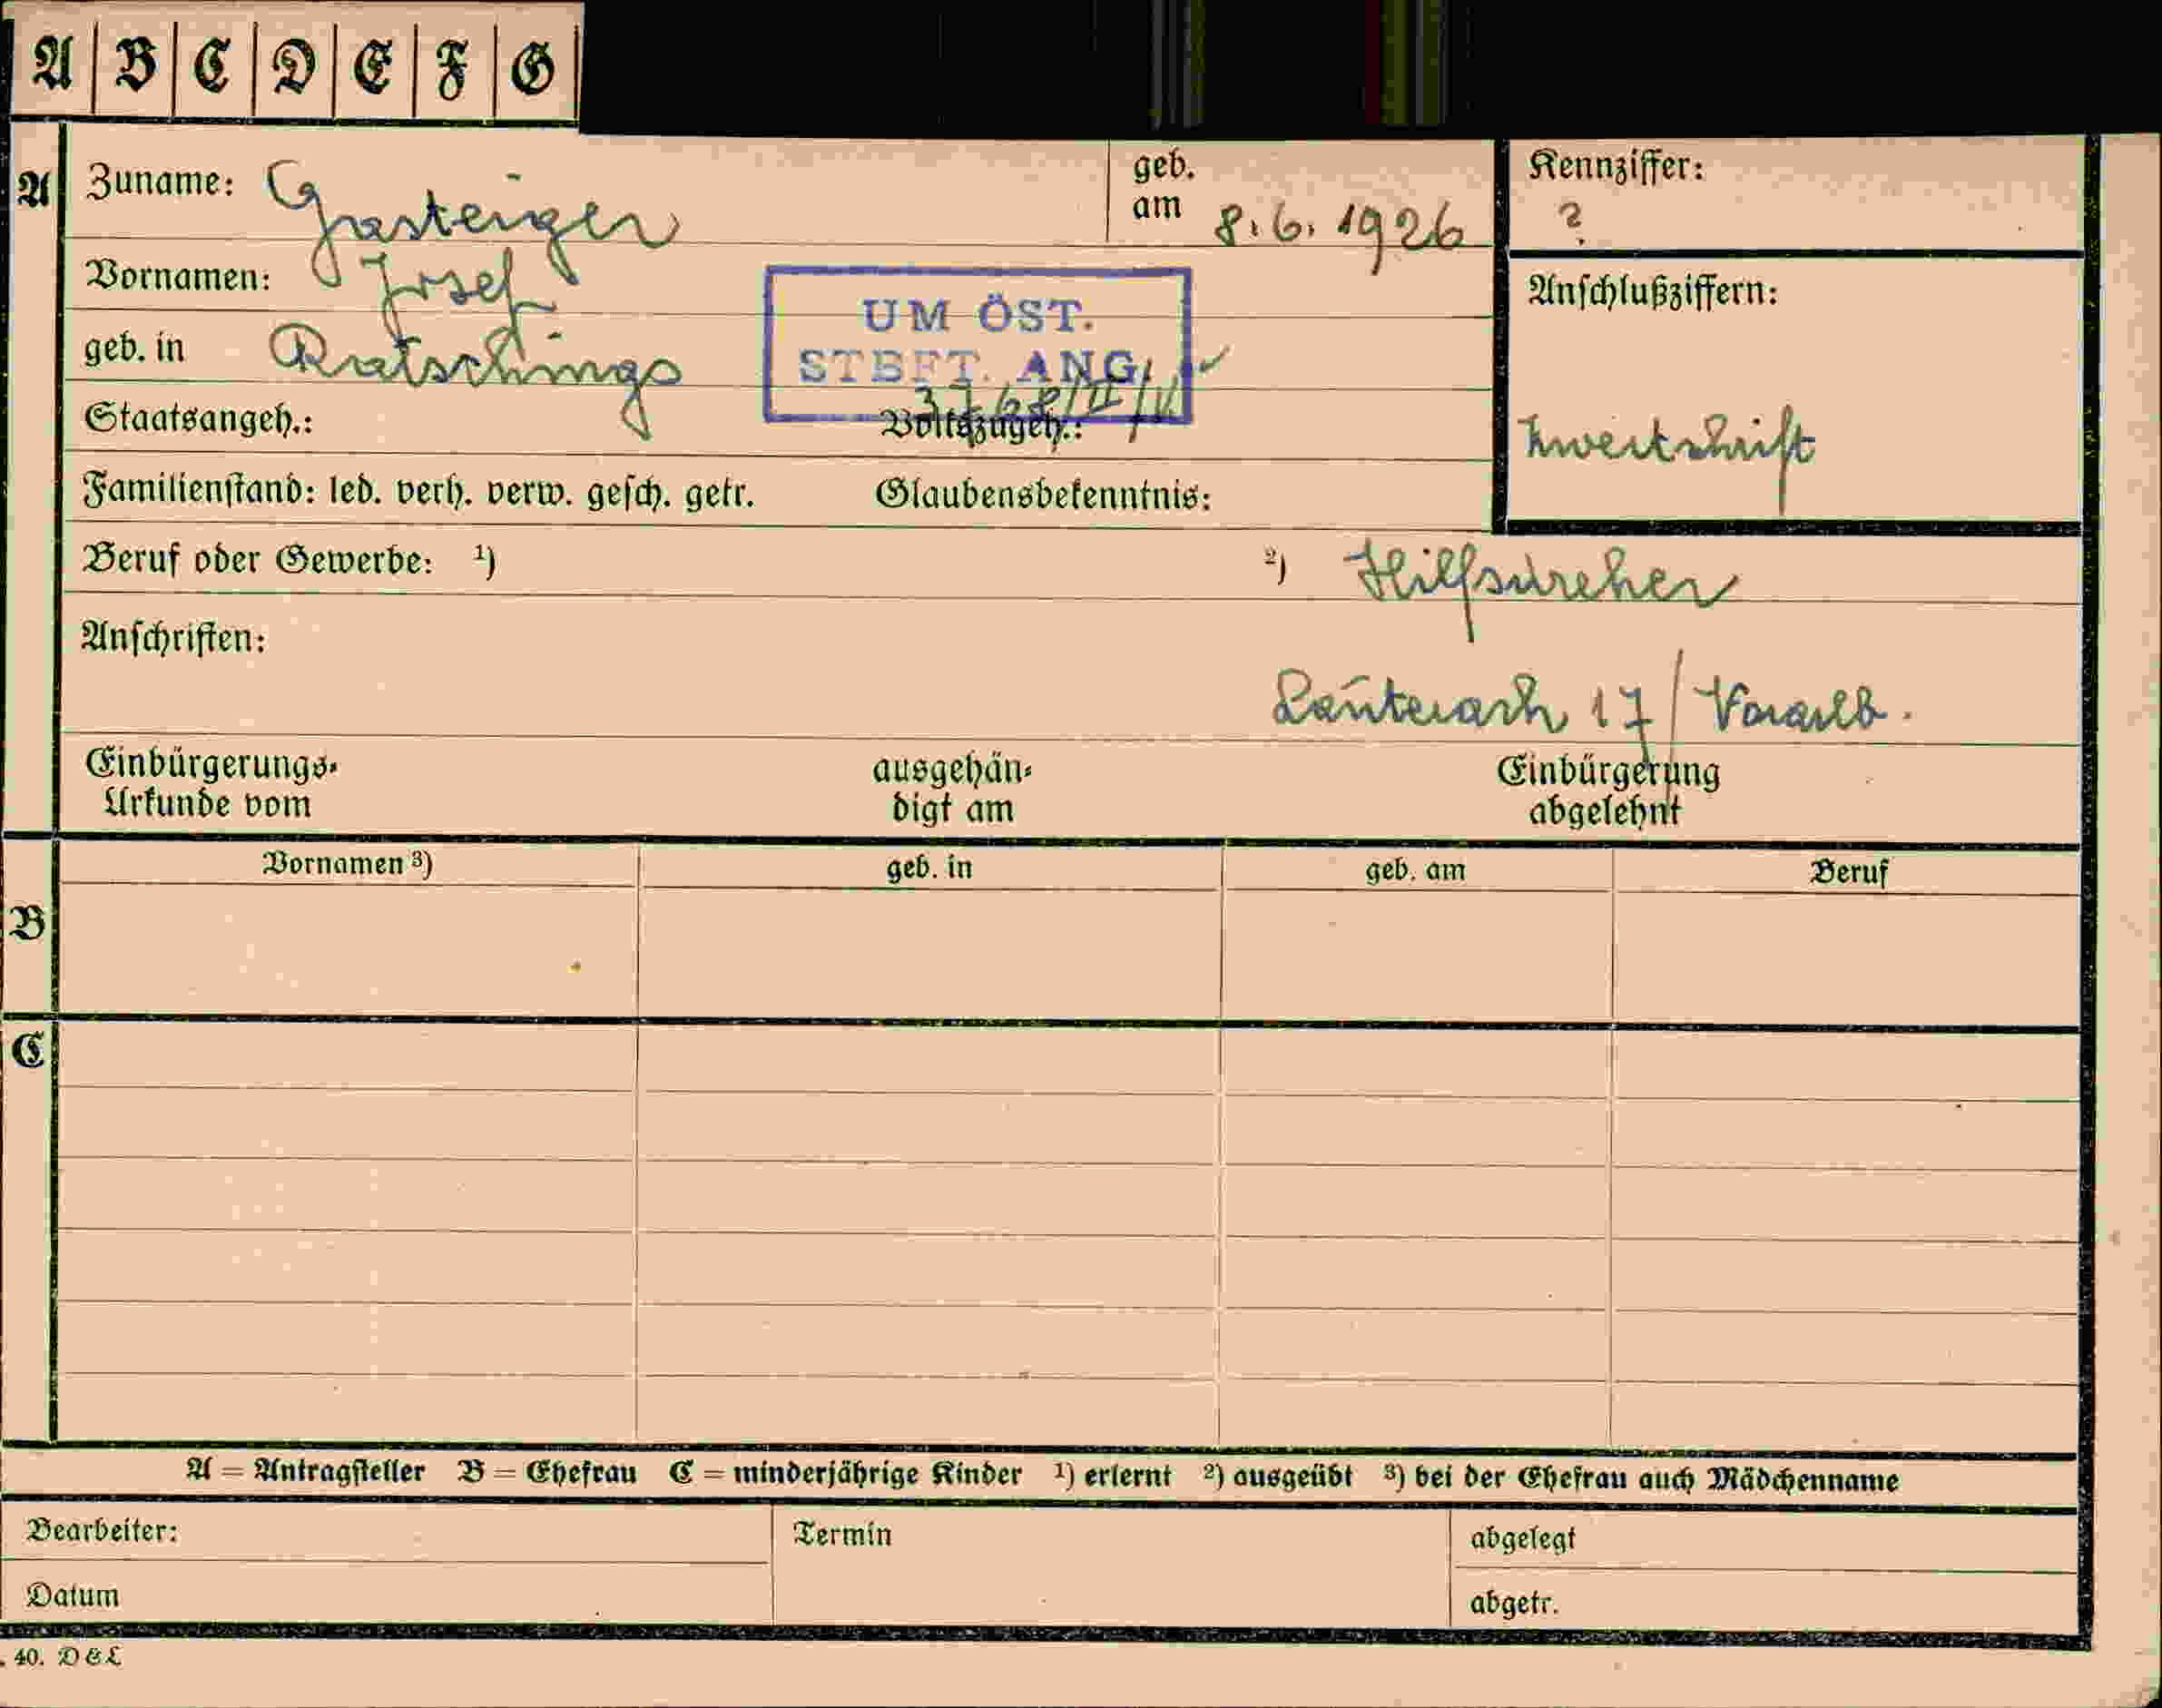 A B C D E F G
A Zuname: Gasteiger geb. am 8.6.1926 Kennziffer: ?
Vornamen: Josef
UM ÖST.
STBFT. ANG.
geb. in Ratschings
Anschlußziffern:
Zweitschrift
Staatsangeh.: Volkszugeh.:
Familienstand: led. verh. verw. gesch. getr. Glaubensbekenntnis:
Beruf oder Gewerbe: ¹) ²) Hilfsdreher
Anschriften:
Lauterach 17/Vorarlb.
Einbürgerungs- ausgehän- Einbürgerung
Urkunde vom digt am abgelehnt
Vornamen ³) geb. in geb. am Beruf
B
C
A = Antragsteller B = Ehefrau C = minderjährige Kinder ¹) erlernt ²) ausgeübt ³) bei der Ehefrau auch Mädchenname
Bearbeiter: Termin abgelegt
Datum abgetr.
40. D & L